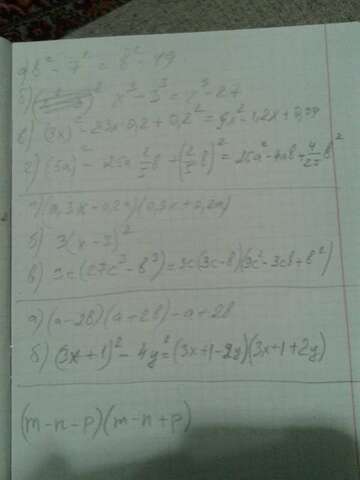 а) b² - 7² = b² - 49
б) x³ - 3³ = x³ - 27
в) (3x)² - 2·3x·0,2 + 0,2² = 9x² - 1,2x + 0,04
г) (5a)² - 2·5a·2/5 b + (2/5 b)² = 25a² - 4ab + 4/25 b²
а) (0,3x - 0,2a)(0,3x + 0,2a)
б) 3(x - 3)²
в) 3c(27c³ - b³) = 3c(3c - b)(9c² - 3cb + b²)
а) (a - 2b)(a + 2b) - a + 2b
б) (3x + 1)² - 4y² = (3x + 1 - 2y)(3x + 1 + 2y)
(m - n - p)(m - n + p)